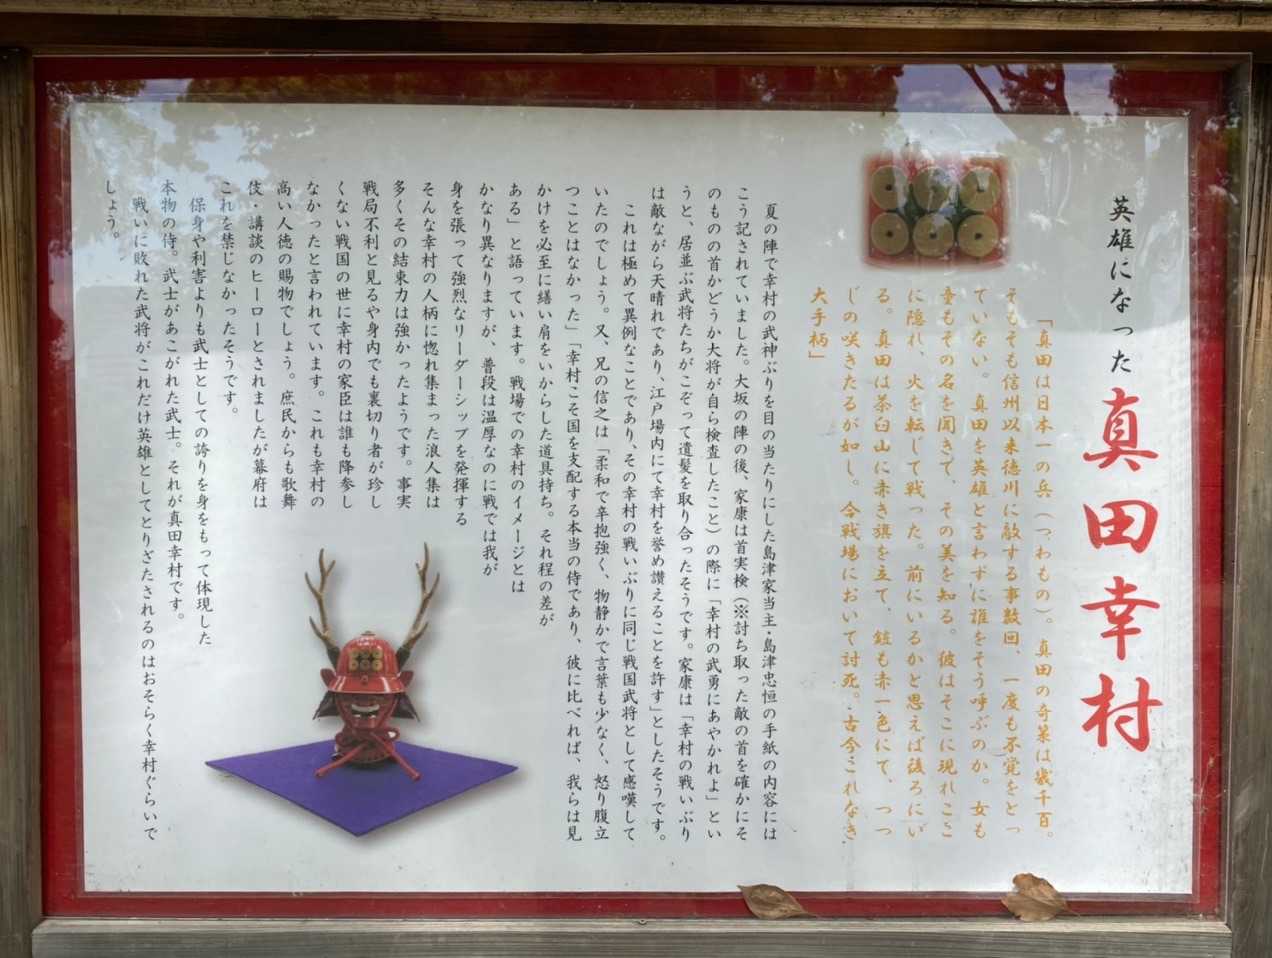 英雄になった真田幸村
「真田は日本一の兵（つわもの）。真田の奇策は幾千百。
そもそも信州以来徳川に敵する事数回、一度も不覚をとっ
ていない。真田を英雄と言わずに誰をそう呼ぶのか。女も
童もその名を聞きて、その美を知る。彼はそこに現れここ
に隠れ、火を転じて戦った。前にいるかと思えば後ろにい
る。真田は茶臼山に赤き旗を立て、鎧も赤一色にて、つつ
じの咲きたるが如し。合戦場において討死。古今これなき
大手柄」
夏の陣で幸村の武神ぶりを目の当たりにした島津家当主・島津忠恒の手紙の内容には
こう記されていました。大坂の陣の後、家康は首実検（※討ち取った敵の首を確かにそ
のものの首かどうか大将が自ら検査したこと）の際に「幸村の武勇にあやかれよ」とい
うと、居並ぶ武将たちがこぞって遺髪を取り合ったそうです。家康は「幸村の戦いぶり
は敵ながら天晴れであり、江戸場内にて幸村を誉め讃えることを許す」としたそうです。
これは極めて異例なことであり、その幸村の戦いぶりに同じ戦国武将として感嘆して
いたのでしょう。又、兄の信之は「柔和で辛抱強く、物静かで言葉も少なく、怒り腹立
つことはなかった」「幸村こそ国を支配する本当の侍であり、彼に比べれば、我らは見
かけを必至に繕い肩をいからした道具持ち。それ程の差が
ある」と語っています。戦場での幸村のイメージとは
かなり異なりますが、普段は温厚なのに戦では我が
身を張って強烈なリーダーシップを発揮する
そんな幸村の人柄に惚れ集まった浪人集は
多くその結束力は強かったようです。事実
戦局不利と見るや身内でも裏切り者が珍し
くない戦国の世に幸村の家臣は誰も降参し
なかったと言われています。これも幸村の
高い人徳の賜物でしょう。庶民からも歌舞
伎・講談のヒーローとされましたが幕府は
これを禁じなかったそうです。
保身や利害よりも武士としての誇りを身をもって体現した
本物の侍。武士があこがれた武士。それが真田幸村です。
戦いに敗れた武将がこれだけ英雄としてとりざたされるのはおそらく幸村ぐらいで
しょう。